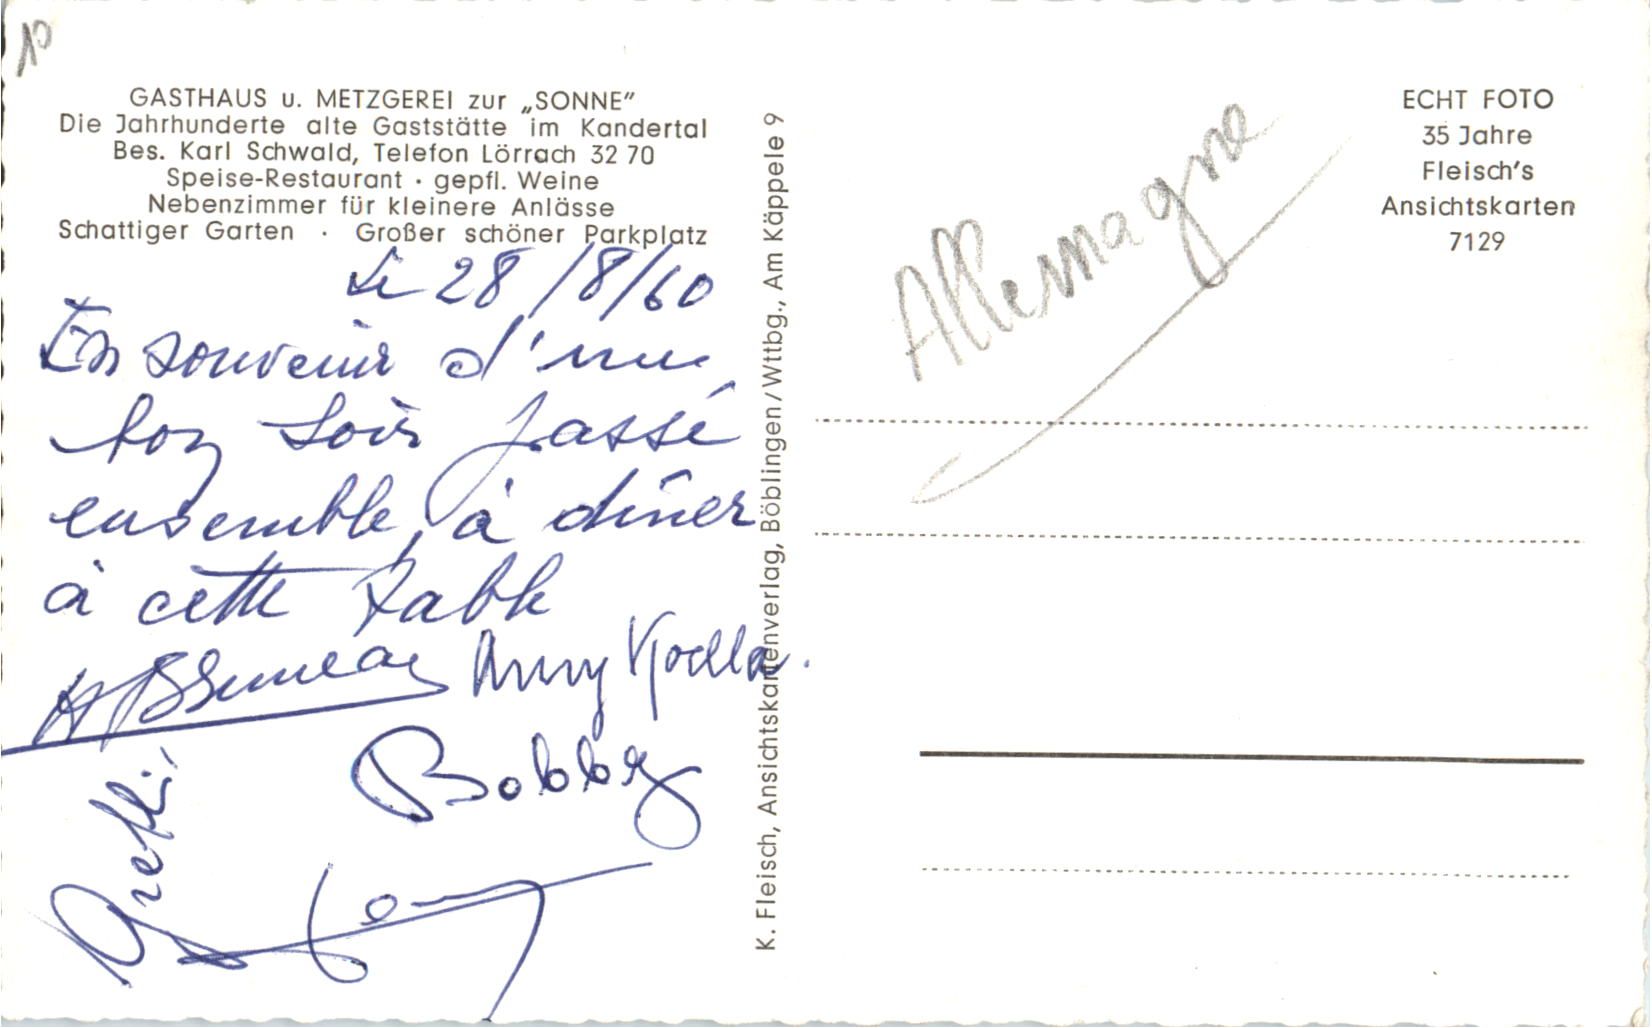 10
GASTHAUS u. METZGEREI zur „SONNE”
Die Jahrhunderte alte Gaststätte im Kandertal
Bes. Karl Schwald, Telefon Lörrach 32 70
Speise-Restaurant · gepfl. Weine
Nebenzimmer für kleinere Anlässe
Schattiger Garten · Großer schöner Parkplatz
Le 28/8/60
En souvenir d'un
bon soir passé
ensemble à dîner
à cette table
Bobby
K. Fleisch, Ansichtskartenverlag, Böblingen/Wttbg., Am Käppele 9
Allemagne
ECHT FOTO
35 Jahre
Fleisch's
Ansichtskarten
7129